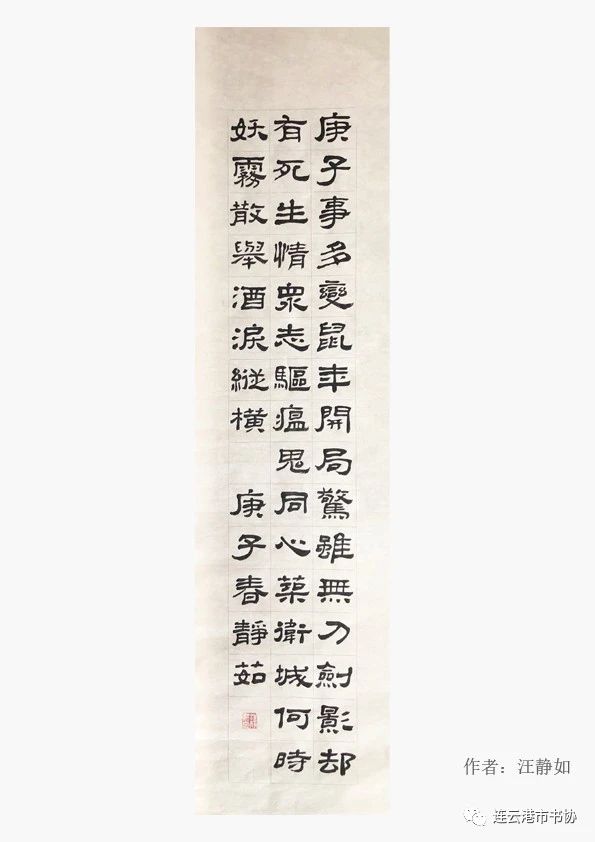 庚子事多變鼠年開局驚雖無刀劍影却
有死生情衆志驅瘟鬼同心築衛城何時
妖霧散舉酒淚縱橫 庚子春靜茹
作者：汪静如
连云港市书协